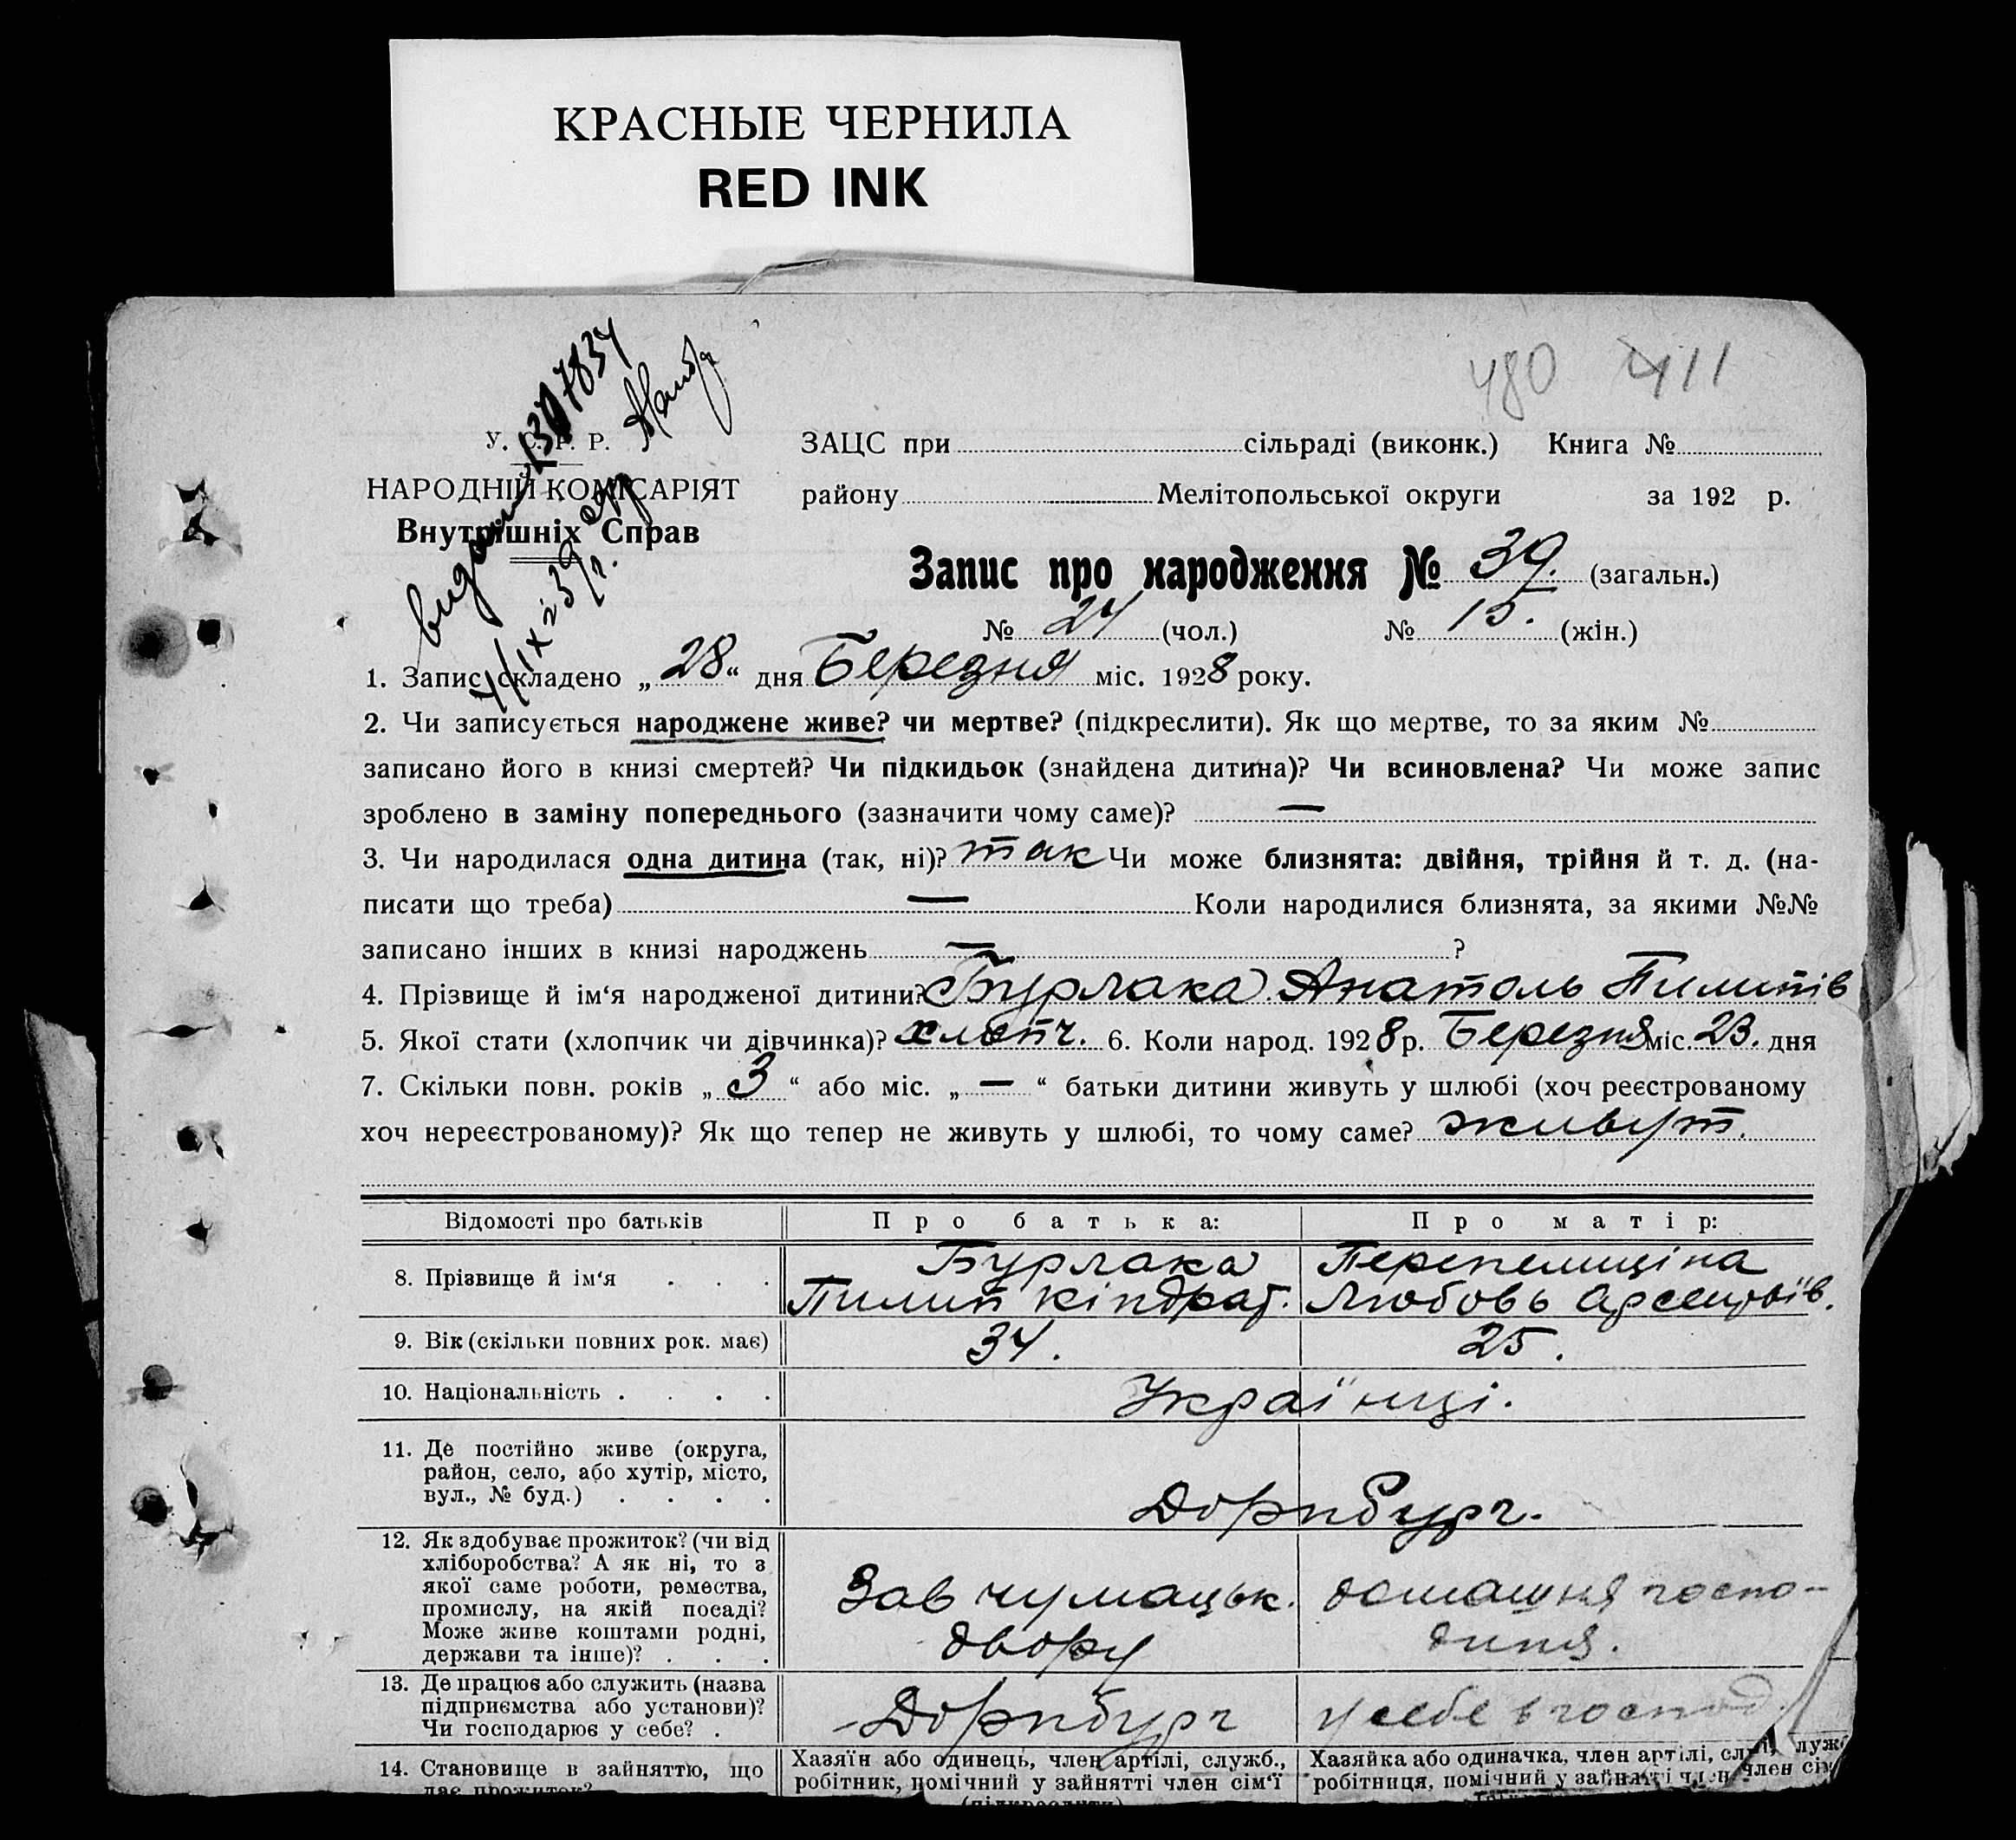 КРАСНЫЕ ЧЕРНИЛА
RED INK
480 411
У. С. Р. Р.
НАРОДНІЙ КОМІСАРІЯТ
Внутрішніх Справ
ЗАЦС при сільраді (виконк.) Книга №
району Мелітопольської округи за 192 р.
Запис про народження № 39. (загальн.)
№ 24 (чол.) № 15. (жін.)
1. Запис складено „28“ дня Березня міс. 1928 року.
2. Чи записується народжене живе? чи мертве? (підкреслити). Як що мертве, то за яким №
записано його в книзі смертей? Чи підкидьок (знайдена дитина)? Чи всиновлена? Чи може запис
зроблено в заміну попереднього (зазначити чому саме)? —
3. Чи народилася одна дитина (так, ні)? так Чи може близнята: двійня, трійня й т. д. (на-
писати що треба) — Коли народилися близнята, за якими №№
записано інших в книзі народжень — ?
4. Прізвище й ім‘я народженої дитини? Бурлака Анатоль Пилипів
5. Якої стати (хлопчик чи дівчинка)? хлопч. 6. Коли народ. 1928 р. Березня міс. 23. дня
7. Скільки повн. років „3“ або міс. „—“ батьки дитини живуть у шлюбі (хоч реєстрованому
хоч нереєстрованому)? Як що тепер не живуть у шлюбі, то чому саме? живут.
Відомості про батьків Про батька: Про матір:
8. Прізвище й ім‘я . . . Бурлака Пилип Кіндрат. Перепелиціна Любовь Арсентіїв.
9. Вік (скільки повних рок. має) 34. 25.
10. Національність . . . . Українці.
11. Де постійно живе (округа,
район, село, або хутір, місто,
вул., № буд.) . . . . Дорнбург.
12. Як здобуває прожиток? (чи від
хліборобства? А як ні, то з
якої саме роботи, ремества,
промислу, на якій посаді?
Може живе коштами родні,
держави та інше)? . . .
Зав чумацьк. двору
домашня госпо-
диня.
13. Де працює або служить (назва
підприємства або установи)?
Чи господарює у себе? .
Дорнбург
у себе в господ.
14. Становище в зайняттю, що
дає прожиток?
Хазяїн або одинець, член артілі, служб.,
робітник, помічний у зайнятті член сім‘ї
(підкреслити)
Хазяйка або одиначка, член артілі,
робітниця, помічний у зайнятті член